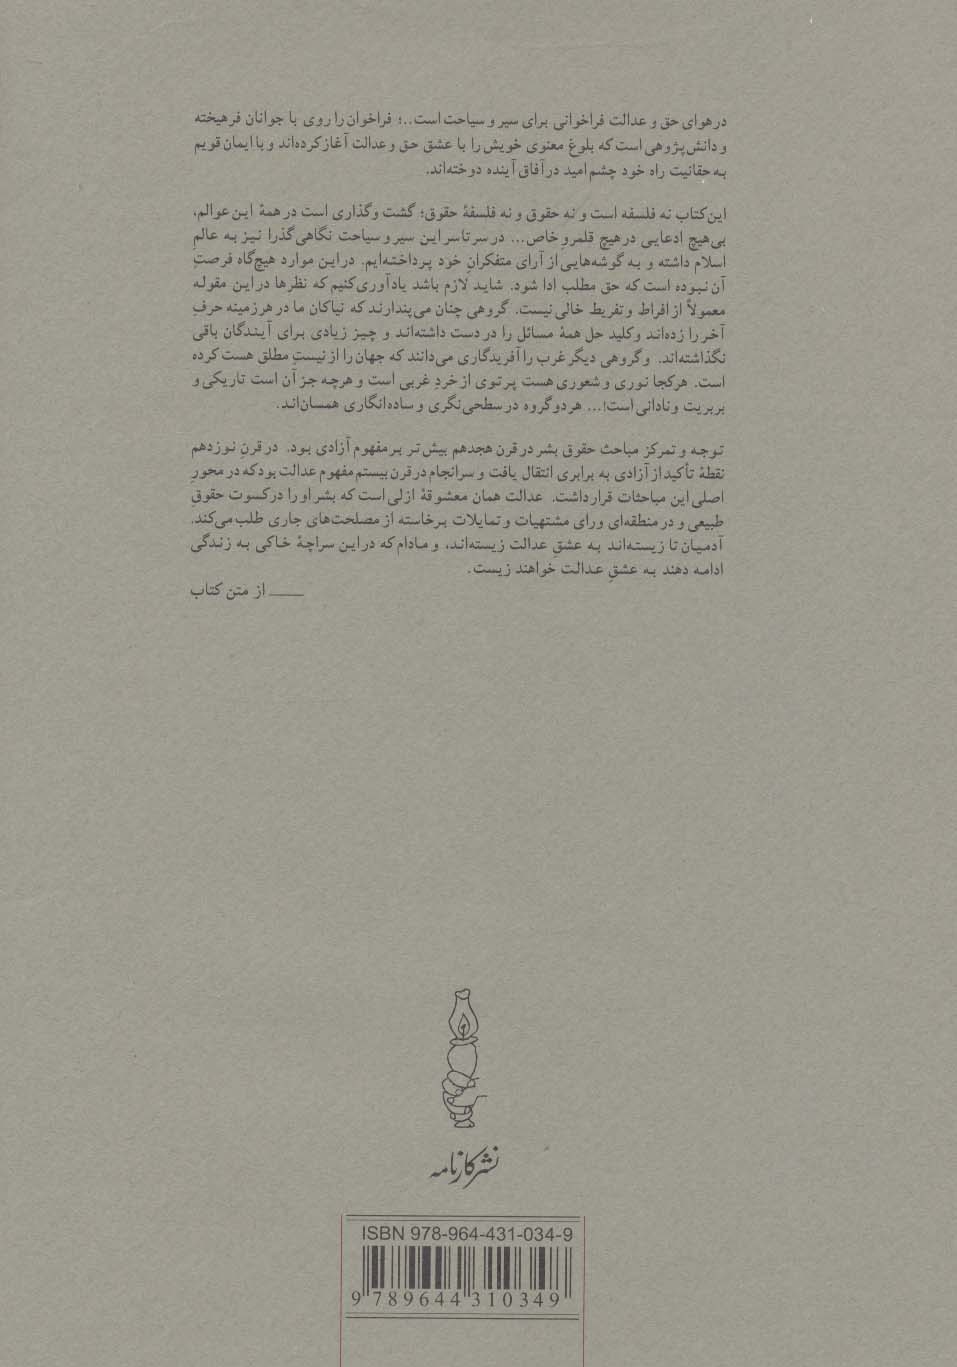 در هوای حق و عدالت فراخوانی برای سیر و سیاحت است..؛ فراخوان را روی با جوانان فرهیخته
و دانش‌پژوهی است که بلوغ معنوی خویش را با عشق حق و عدالت آغاز کرده‌اند و با ایمان قویم
به حقانیت راه خود چشم امید در آفاق آینده دوخته‌اند.
این کتاب نه فلسفه است و نه حقوق و نه فلسفهٔ حقوق؛ گشت و گذاری است در همهٔ این عوالم،
بی‌هیچ ادعایی در هیچ قلمروِ خاص... در سرتاسر این سیر و سیاحت نگاهی گذرا نیز به عالمِ
اسلام داشته و به گوشه‌هایی از آرای متفکرانِ خود پرداخته‌ایم. در این موارد هیچ‌گاه فرصتِ
آن نبوده است که حق مطلب ادا شود. شاید لازم باشد یادآوری کنیم که نظرها در این مقوله
معمولاً از افراط و تفریط خالی نیست. گروهی چنان می‌پندارند که نیاکان ما در هر زمینه حرفِ
آخر را زده‌اند و کلید حل همهٔ مسائل را در دست داشته‌اند و چیز زیادی برای آیندگان باقی
نگذاشته‌اند. و گروهی دیگر غرب را آفریدگاری می‌دانند که جهان را از نیستِ مطلق هست کرده
است. هر کجا نوری و شعوری هست پرتوی از خردِ غربی است و هرچه جز آن است تاریکی و
بربریت و نادانی است!... هر دو گروه در سطحی‌نگری و ساده‌انگاری همسان‌اند.
توجه و تمرکز مباحث حقوق بشر در قرن هجدهم بیش‌تر بر مفهوم آزادی بود. در قرنِ نوزدهم
نقطهٔ تأکید از آزادی به برابری انتقال یافت و سرانجام در قرن بیستم مفهوم عدالت بود که در محورِ
اصلی این مباحثات قرار داشت. عدالت همان معشوقهٔ ازلی است که بشر او را در کسوت حقوقِ
طبیعی و در منطقه‌ای ورای مشتهیات و تمایلات برخاسته از مصلحت‌های جاری طلب می‌کند.
آدمیان تا زیسته‌اند به عشقِ عدالت زیسته‌اند، و مادام که در این سراچهٔ خاکی به زندگی
ادامه دهند به عشقِ عدالت خواهند زیست.
—— از متن کتاب
نشر کارنامه
ISBN 978-964-431-034-9
9 789644 310349